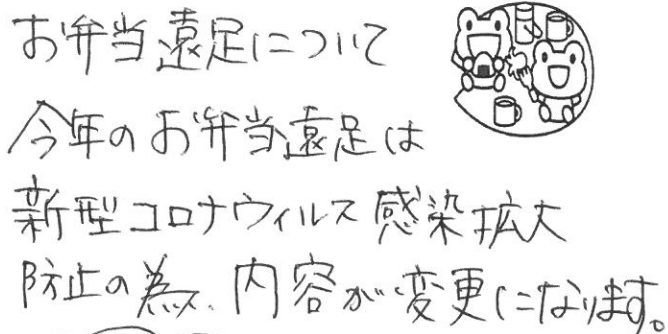 お弁当遠足について
今年のお弁当遠足は
新型コロナウィルス感染拡大
防止の為、内容が変更になります。